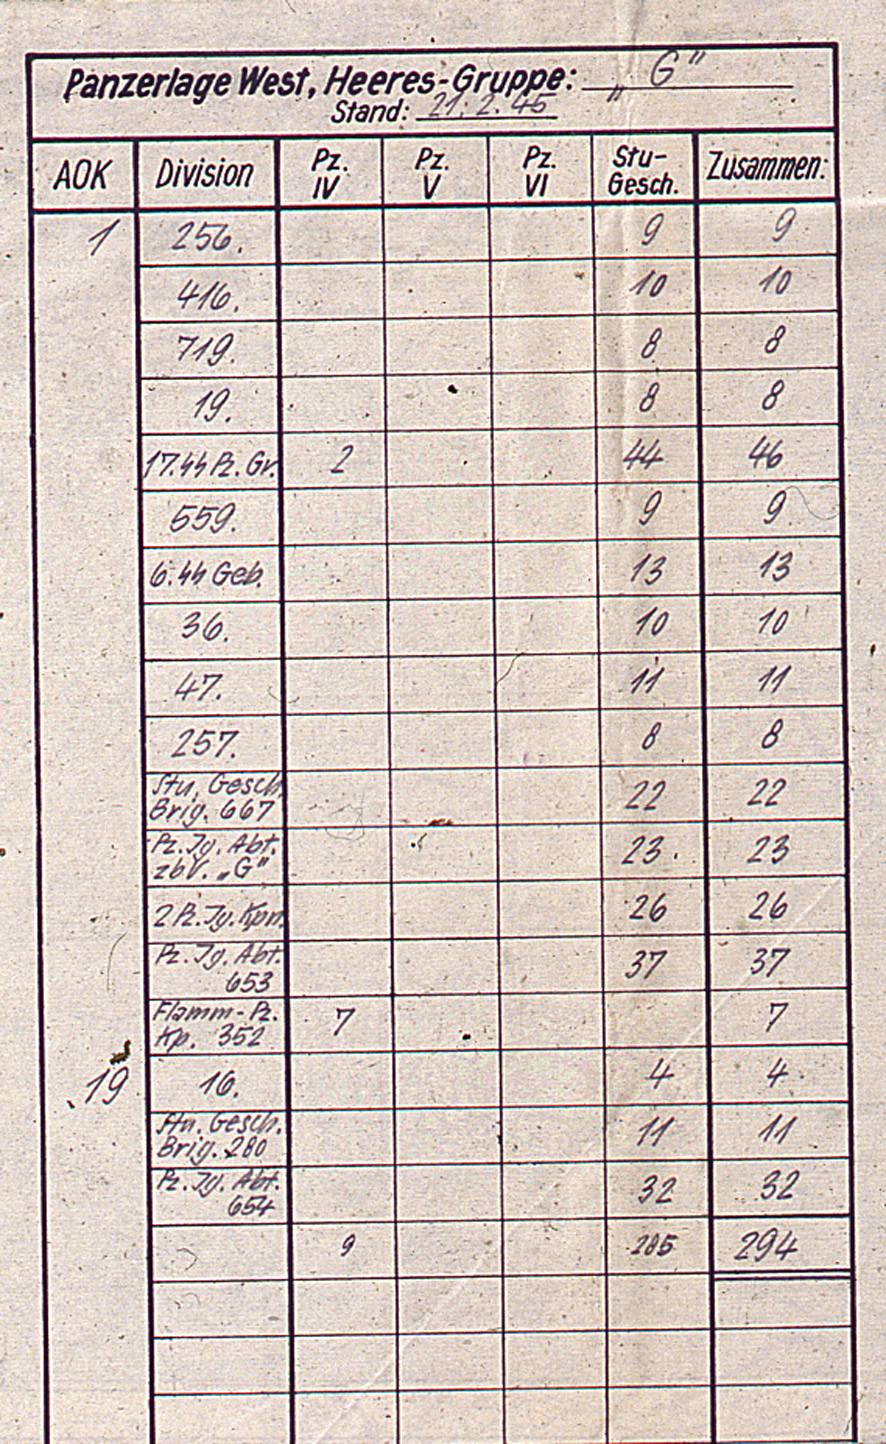 Panzerlage West, Heeres-Gruppe: „G“
Stand: 21. 2. 45
AOK Division Pz. IV Pz. V Pz. VI Stu-Gesch. Zusammen:
1 256. 9 9
416. 10 10
719. 8 8
19. 8 8
17. SS Pz. Gr. 2 44 46
559. 9 9
6. SS Geb. 13 13
36. 10 10
47. 11 11
257. 8 8
Stu. Gesch.
Brig. 667 22 22
Pz. Jg. Abt.
zbV. „G“ 23 23
2 Pz. Jg. Kpn. 26 26
Pz. Jg. Abt.
653 37 37
Flamm-Pz.
Kp. 352 7 7
19 16. 4 4
Stu. Gesch.
Brig. 280 11 11
Pz. Jg. Abt.
654 32 32
9 285 294